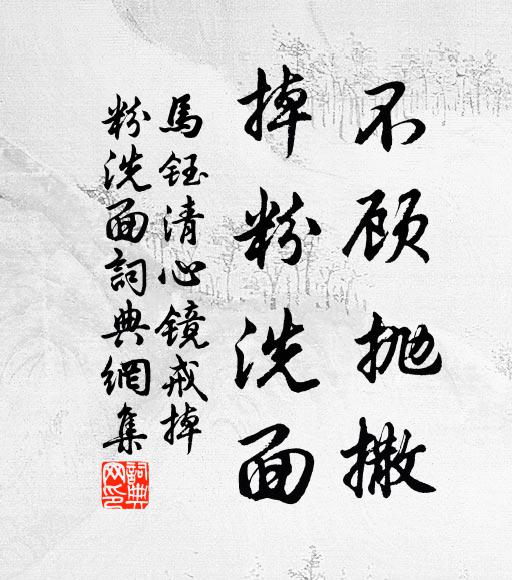 不顾抛撒
掉粉洗面
馬鈺清心镜戒掉
粉洗面詞典網集
詞典
网印